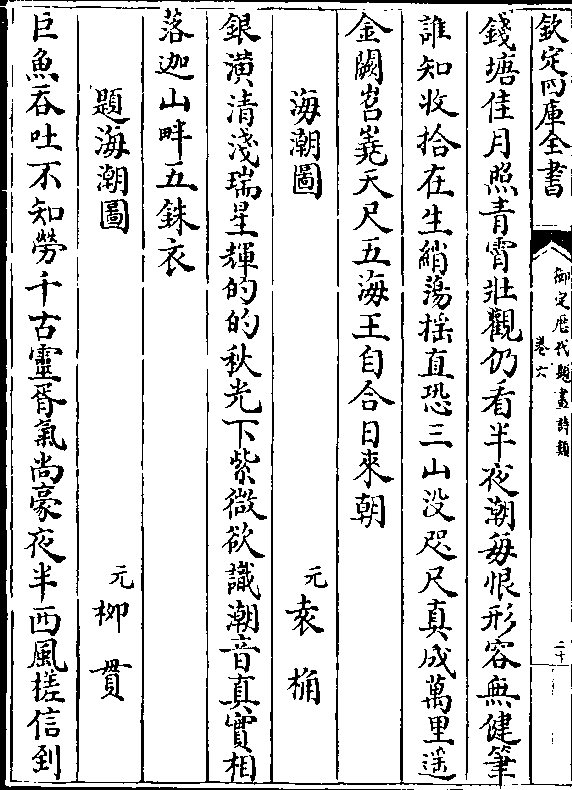 欽定四庫全書
御定歷代題畫詩類
卷六
二十
錢塘佳月照青霄壯觀仍看半夜潮每恨形容無健筆
誰知收拾在生綃蕩摇直恐三山没咫尺真成萬里遥
金闕岧嶤天尺五海王自合日來朝
海潮圖
元
袁桷
銀潢清淺瑞星輝的的秋光下紫微欲識潮音真實相
落迦山畔五銖衣
題海潮圖
元
柳貫
巨魚吞吐不知勞千古靈胥氣尚豪夜半西風槎信到